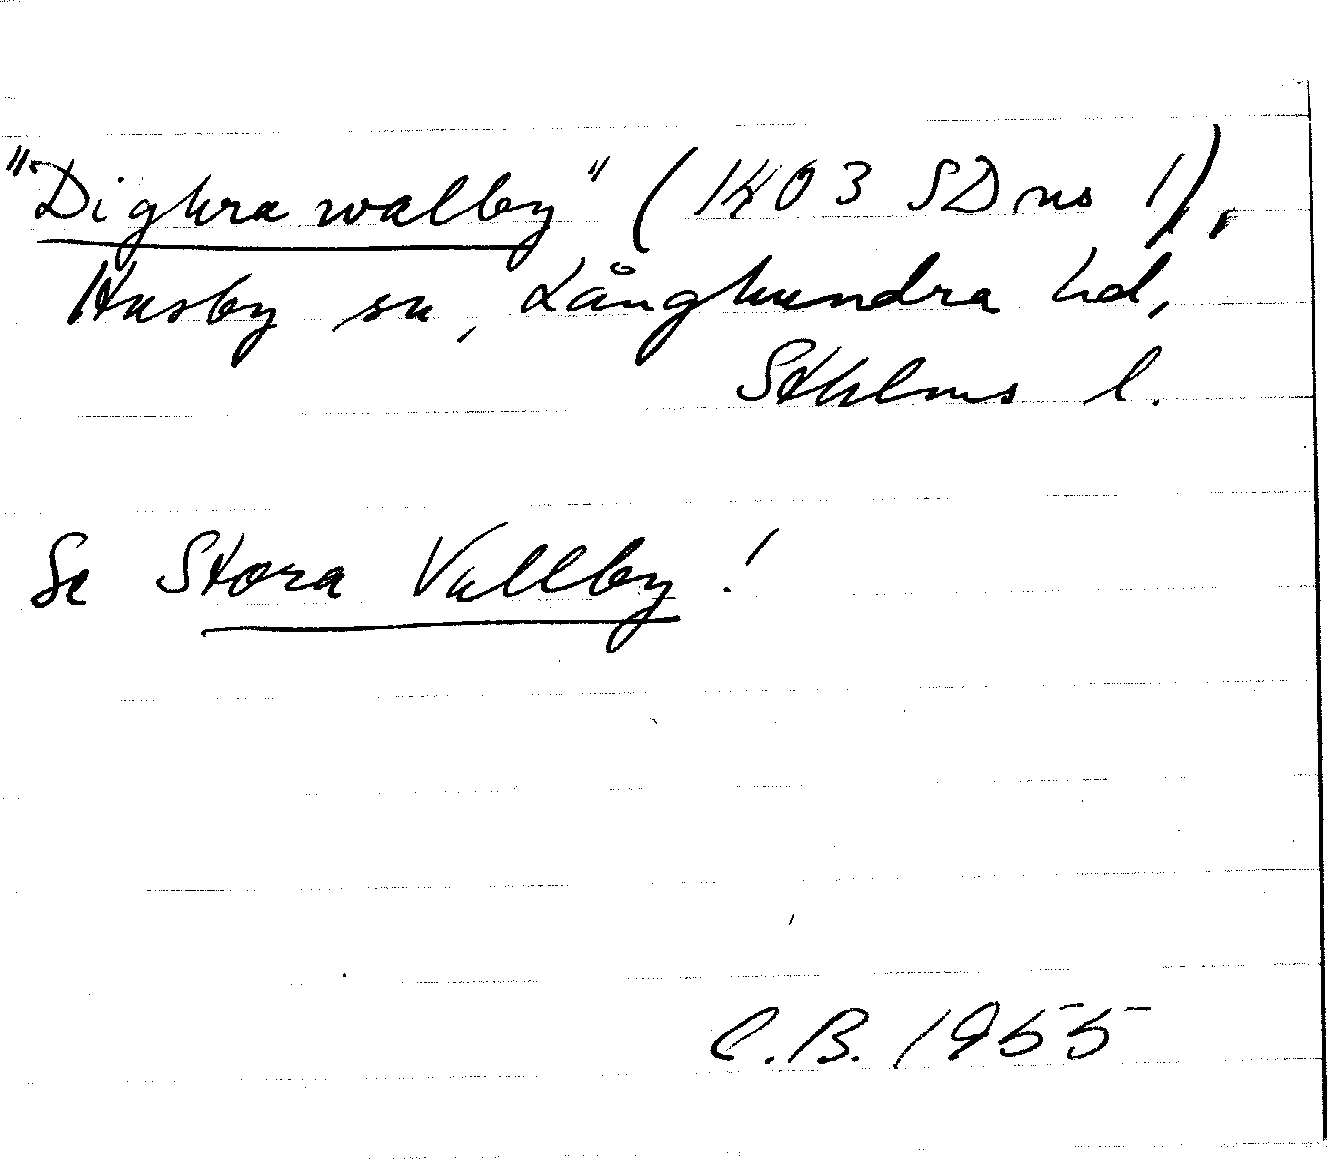 "Dighra walby" (1403 SD ns 1),
Husby sn, Långhundra hd,
Sthlms l.
Se Stora Vallby!
C.B. 1955